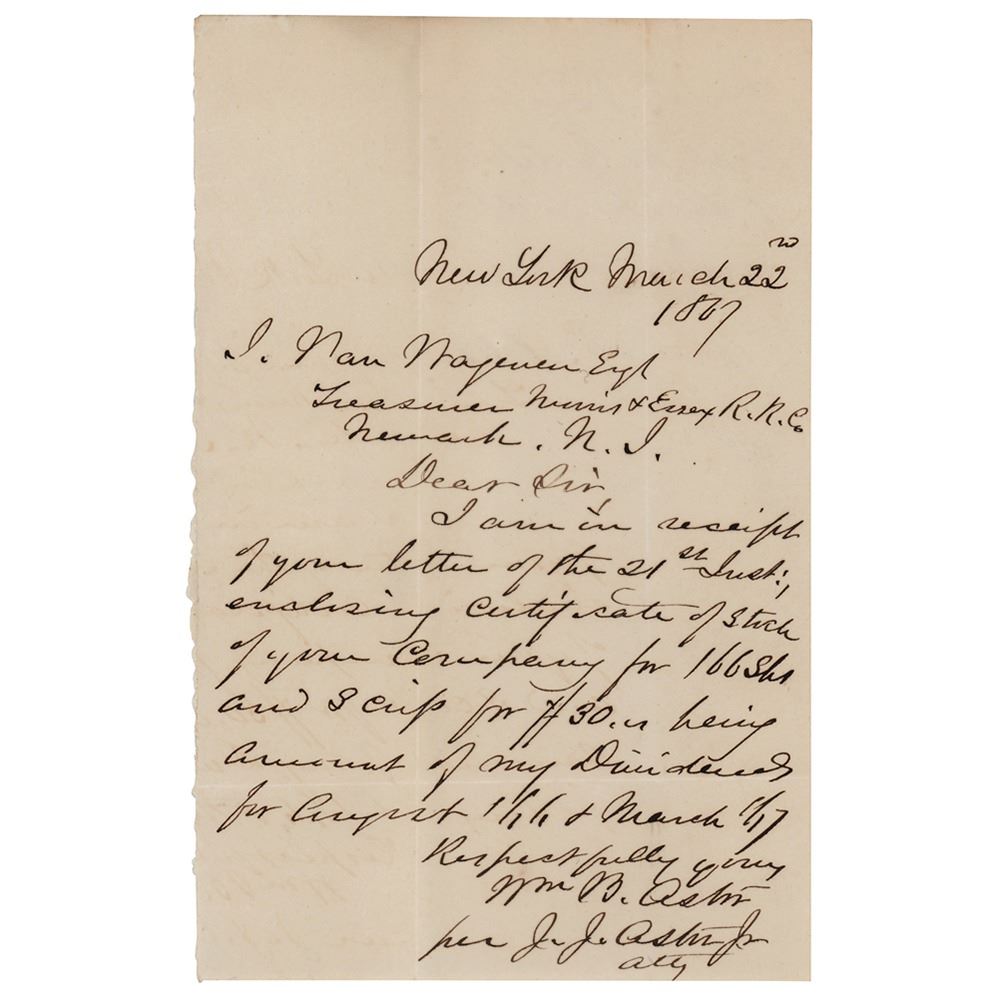 New York March 22nd
1867
J. Van Wagenen Esq
Treasurer Morris & Essex R.R. Co
Newark. N. J.
Dear Sir,
I am in receipt
of your letter of the 21st Inst:,
enclosing Certificate of Stock
of your Company for 166 Shs
and Scrip for $30. being
amount of my Dividends
for August 1/66 & March 1/67
Respectfully yours
Wm B. Astor
per J. J. Astor Jr
atty